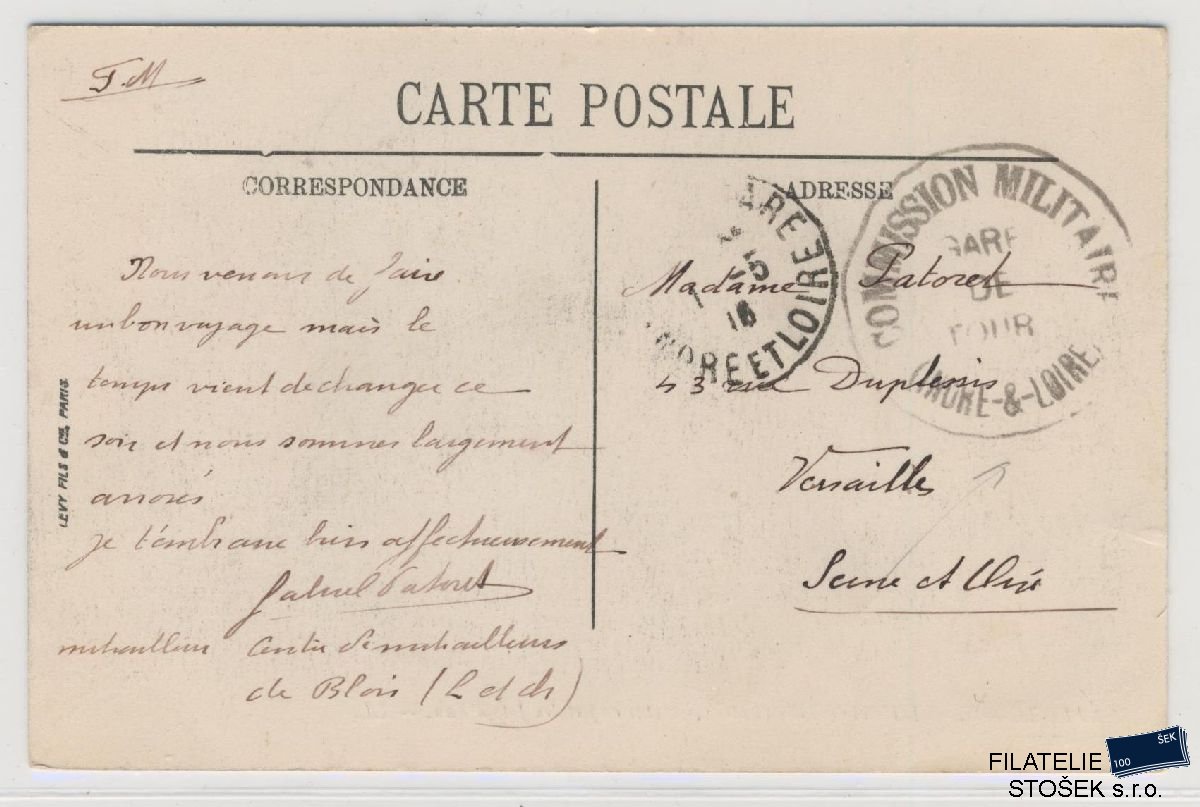 F.M
CARTE POSTALE
CORRESPONDANCE
ADRESSE
Nous venons de faire
un bon voyage mais le
temps vient de changer ce
soir et nous sommes largement
arrosés
je t'embrasse bien affectueusement
Gabriel Patoret
mitrailleur Centre de mitrailleurs
de Blois (L et Ch)
LEVY FILS & CIE, PARIS
Madame Patoret
43 rue Duplessis
Versailles
Seine et Oise
ARE
5
16
INDRE ET LOIRE
COMMISSION MILITAIRE
GARE
DE
TOUR
INDRE-&-LOIRE
FILATELIE
STOŠEK s.r.o.
100 ŠEK